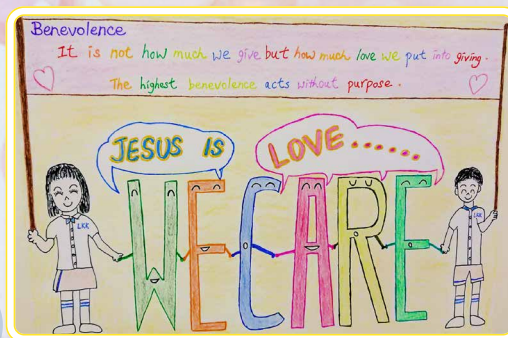 Benevolence
It is not how much we give but how much love we put into giving.
The highest benevolence acts without purpose.
JESUS IS
LOVE......
WE CARE
LKK
LKK